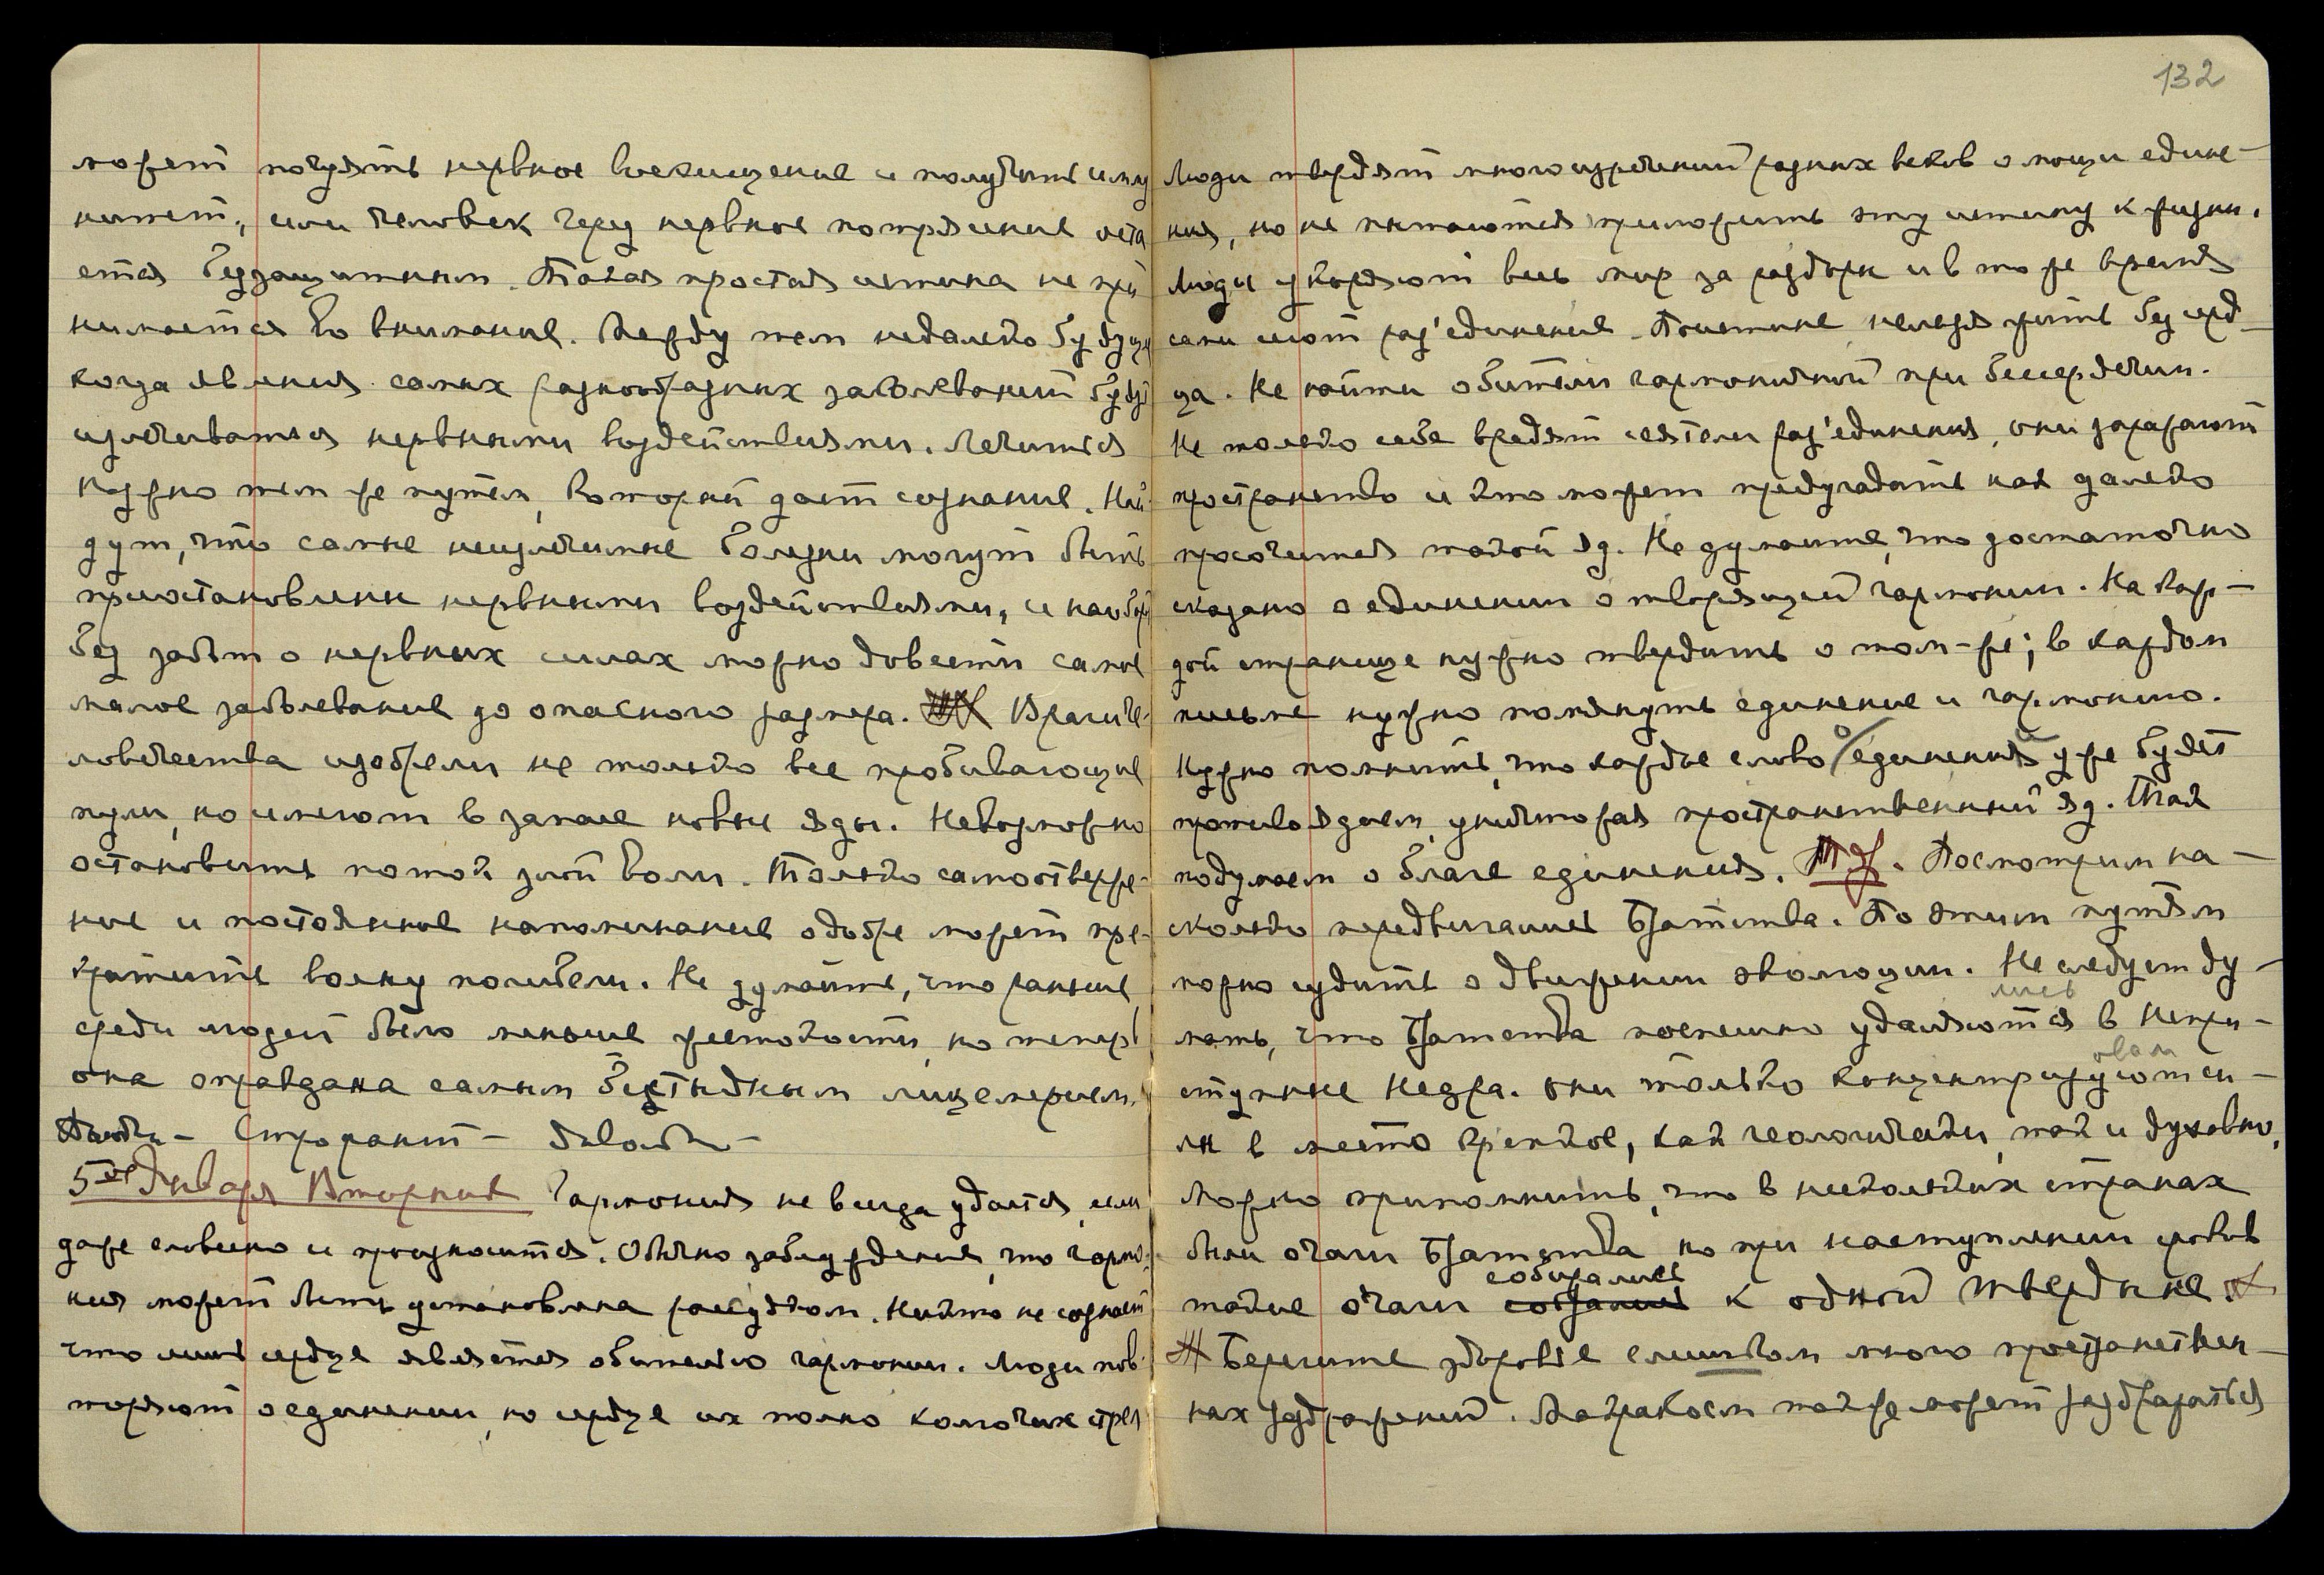 может почуять нервное восхищение и получить имму
нитет, или человек через нервное потрясение оста
ется беззащитным. Такая простая истина не при
нимается во внимание. Между тем недалеко будущее
когда явления самых разнообразных заболеваний будут
излечиваться нервными воздействиями. Лечиться
нужно тем же путем, который дает сознание. Най
дут, что самые неизлечимые болезни могут быть
приостановлены нервными воздействиями, и наоборот
без забот о нервных силах можно довести самое
малое заболевание до опасного размера. Враги че-
ловечества изобрели не только все пробивающие
пули, но имеют в запасе новые яды. Невозможно
остановить поток злой воли. Только самоотверже-
ние и постоянное напоминание о добре может пре-
кратить волну погибели. Не думайте, что раньше
среди людей было меньше жестокости, но теперь
она оправдана самым бесстыдным лицемерием.
5ое Января Вторник Гармония не всегда удается, если
даже словесно и произносится. Обычно заблуждение, что гармо-
ния может быть установлена рассудком. Никто не сознает
что лишь сердце является обителью гармонии. Люди пов-
торяют о единении, но сердце их полно колючих стрел
132
Люди твердят много изречений разных веков о мощи едине-
ния, но не пытаются приложить эту истину к жизни.
Люди укоряют весь мир за раздоры и в то же время
сами сеют раз'единение. Поистине нельзя жить без серд-
ца. Не найти обители гармоничной при бессердечии.
Не только себе вредят сеятели раз'единения, они заражают
пространство и кто может предугадать как далеко
просочится такой яд. Не думайте, что достаточно
сказано о единении о творящей гармонии. На каж-
дой странице нужно твердить о том-же; в каждом
письме нужно помянуть единение и гармонию.
Нужно помнить, что каждое слово о единении уже будет
противоядием, уничтожая пространственный яд. Так
подумаем о благе единения. Посмотрим на-
сколько передвигались Братства. По этим путям
можно судить о движении эволюции. Не следует ду-
лись
мать, что Братства поспешно удаляются в непри-
овал
ступные недра. Они только концентрируются-
лн в место крепкое, как геологически, так и духовно,
Можно припомнить, что в нескольких странах
были очаги Братства, но при наступлении сроков
собирались
такие очаги к одной твердыне.
Берегите здоровье слишком много пространствен-
ных раздражений. Макрокосм также может раздражаться